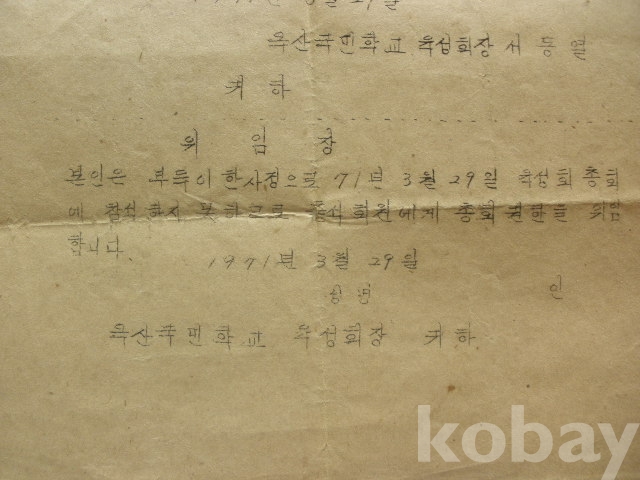 옥산국민학교 육성회장 서 동 열
귀 하
위 임 장
본인은 부득이한 사정으로 71년 3월 29일 육성회 총회
에 참석하지 못하므로 출석 회원에게 총회 권한을 위임
합니다.
1971년 3월 29일
성명 인
옥산국민학교 육성회장 귀하
kobay